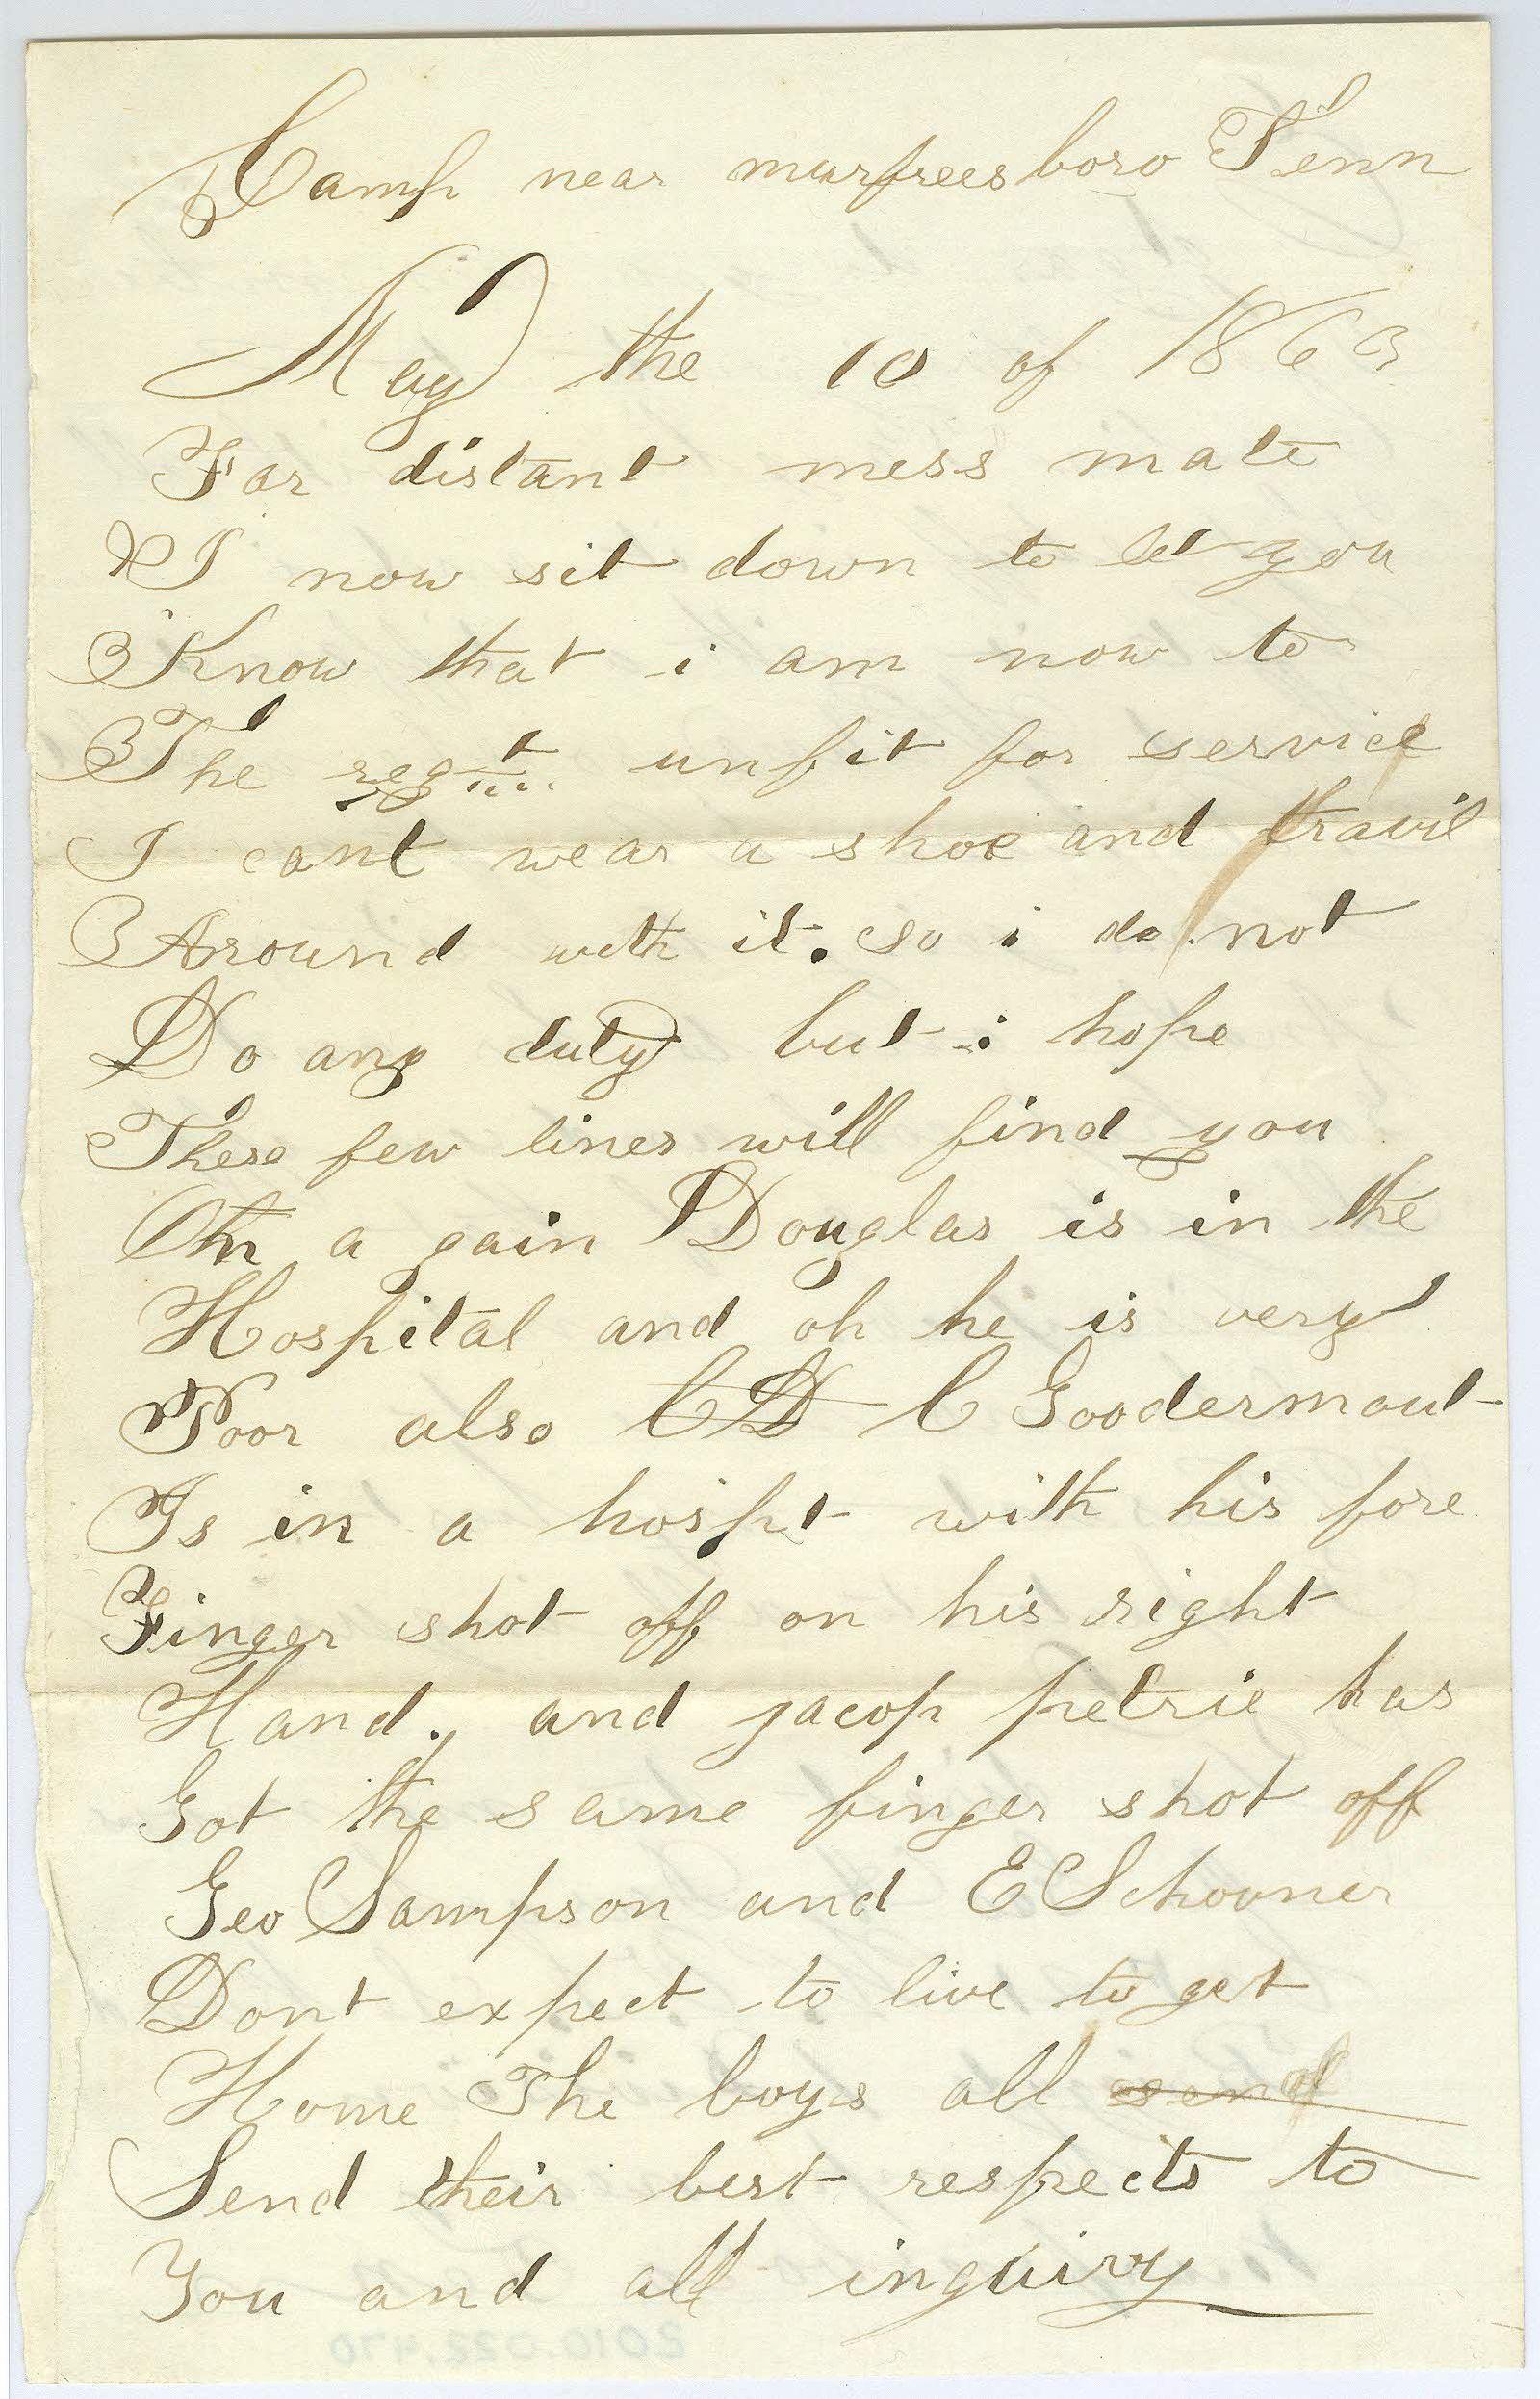 Camp near murfreesboro Tenn
May the 10 of 1863
Far distant mess mate
I now sit down to let you
Know that i am now to
The regt unfit for service
I cant wear a shoe and travil
Around with it. so i do not
Do any duty but i hope
These few lines will find you
On a gain Douglas is in the
Hospital and oh he is very
Poor also C D C Goodermout
Is in a hospt with his fore
Finger shot off on his right
Hand. and jacop petrie has
Got the same finger shot off
Geo Sampson and E Schooner
Dont expect to live to get
Home The boys all send
Send their best respects to
You and all inquiry
2010.022.470